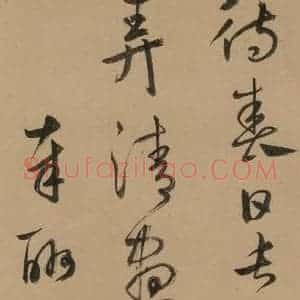 待春日長
弄清
奉酬
Shufaziliao.com